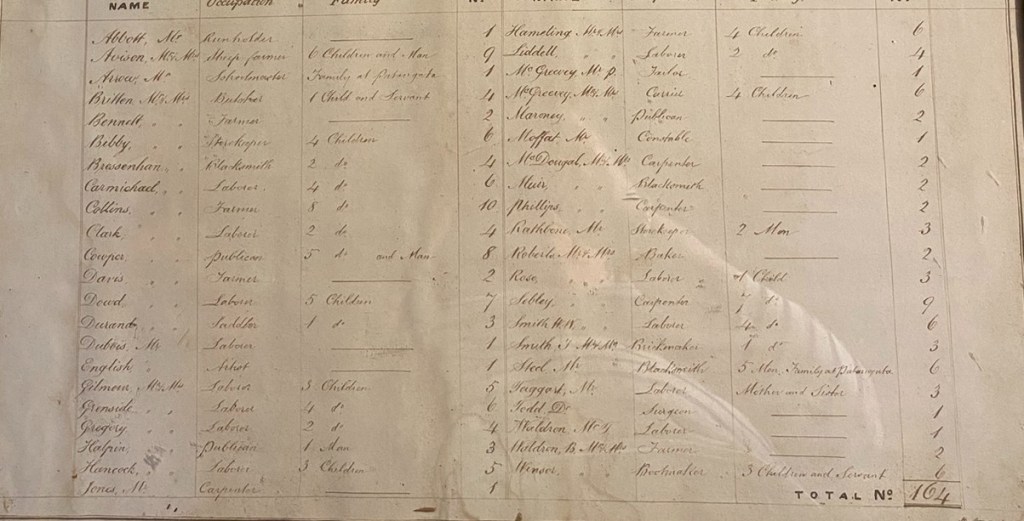 NAME Occupation Family No
Abbott, Mr Runholder 1
Avison, Mr & Mrs Sheep farmer 6 Children and Man 9
Arrow, Mr Schoolmaster Family at Patangata 1
Britten Mr & Mrs Butcher 1 Child and Servant 4
Bennett, " " Farmer 2
Bibby, " " Storekeeper 4 Children 6
Bressenhan, " " Blacksmith 2 do 4
Carmichael, " " Laborer 4 do 6
Collins, " " Farmer 8 do 10
Clark, " " Laborer 2 do 4
Cowper, " " Publican 5 do and Man 8
Davis " " Farmer 2
Dowd, " " Laborer 5 Children 7
Durand, " " Saddler 1 do 3
Dubois, Mr Laborer 1
English, " Artist 1
Gilmour, Mr & Mrs Laborer 3 Children 5
Grenside, " " Laborer 4 do 6
Gregory, " " Laborer 2 do 4
Halpin, " " Publican 1 Man 3
Hancock, " " Laborer 3 Children 5
Jones, Mr Carpenter 1
Hamling Mr & Mrs Farmer 4 Children 6
Liddell, " " Laborer 2 do 4
McGreevy, Mr P. Tailor 1
McGreevy, Mr & Mrs Carrier 4 Children 6
Maroney, " " Publican 2
Moffat Mr Constable 1
McDougal, Mr & Mrs Carpenter 2
Muir, " " Blacksmith 2
Phillips, " " Carpenter 2
Rathbone Mr Storekeeper 2 Men 3
Roberts Mr & Mrs Baker 2
Rose, " " Laborer 1 Child 3
Sibley, " " Carpenter 7 do 9
Smith H.W. " " Laborer 4 do 6
Smith J Mr & Mrs Brickmaker 1 do 3
Steel Mr Blacksmith 5 Men, Family at Patangata 6
Taggart, Mr Laborer Mother and Sister 3
Todd Dr Surgeon 1
Waldron, Mr Laborer 1
Waldron, B. Mr & Mrs Farmer 2
Winsor, " " Bootmaker 3 Children and Servant 6
TOTAL No 164